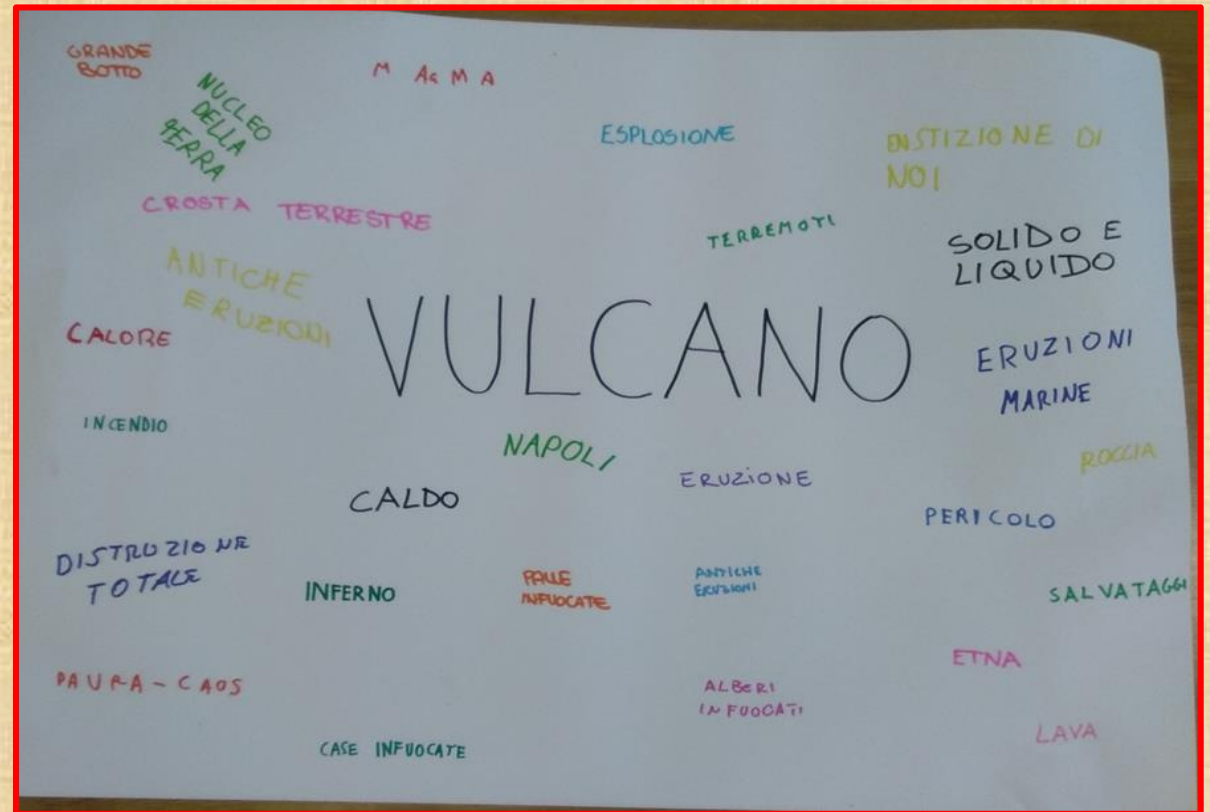 GRANDE
BOTTO
NUCLEO
DELLA
TERRA
M AG M A
ESPLOSIONE
ENSTIZIONE DI
NOI
CROSTA TERRESTRE
TERREMOTI
SOLIDO E
LIQUIDO
ANTICHE
ERUZIONI
CALORE
VULCANO
ERUZIONI
MARINE
INCENDIO
NAPOLI
ERUZIONE
ROCCIA
CALDO
PERICOLO
DISTRUZIONE
TOTALE
INFERNO
PALLE
INFUOCATE
ANTICHE
ERUZIONI
SALVATAGGI
ETNA
PAURA-CAOS
ALBERI
INFUOCATI
LAVA
CASE INFUOCATE